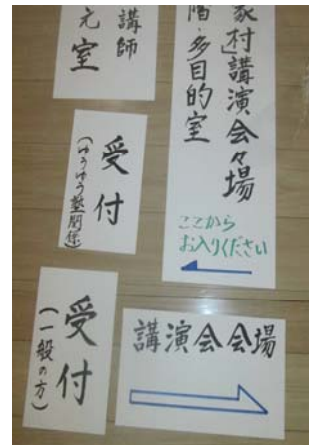 講師
元室
家村」講演会々場
階・多目的室
ここから
お入りください
受付
(ゆうゆう塾関係)
受付
(一般の方)
講演会会場